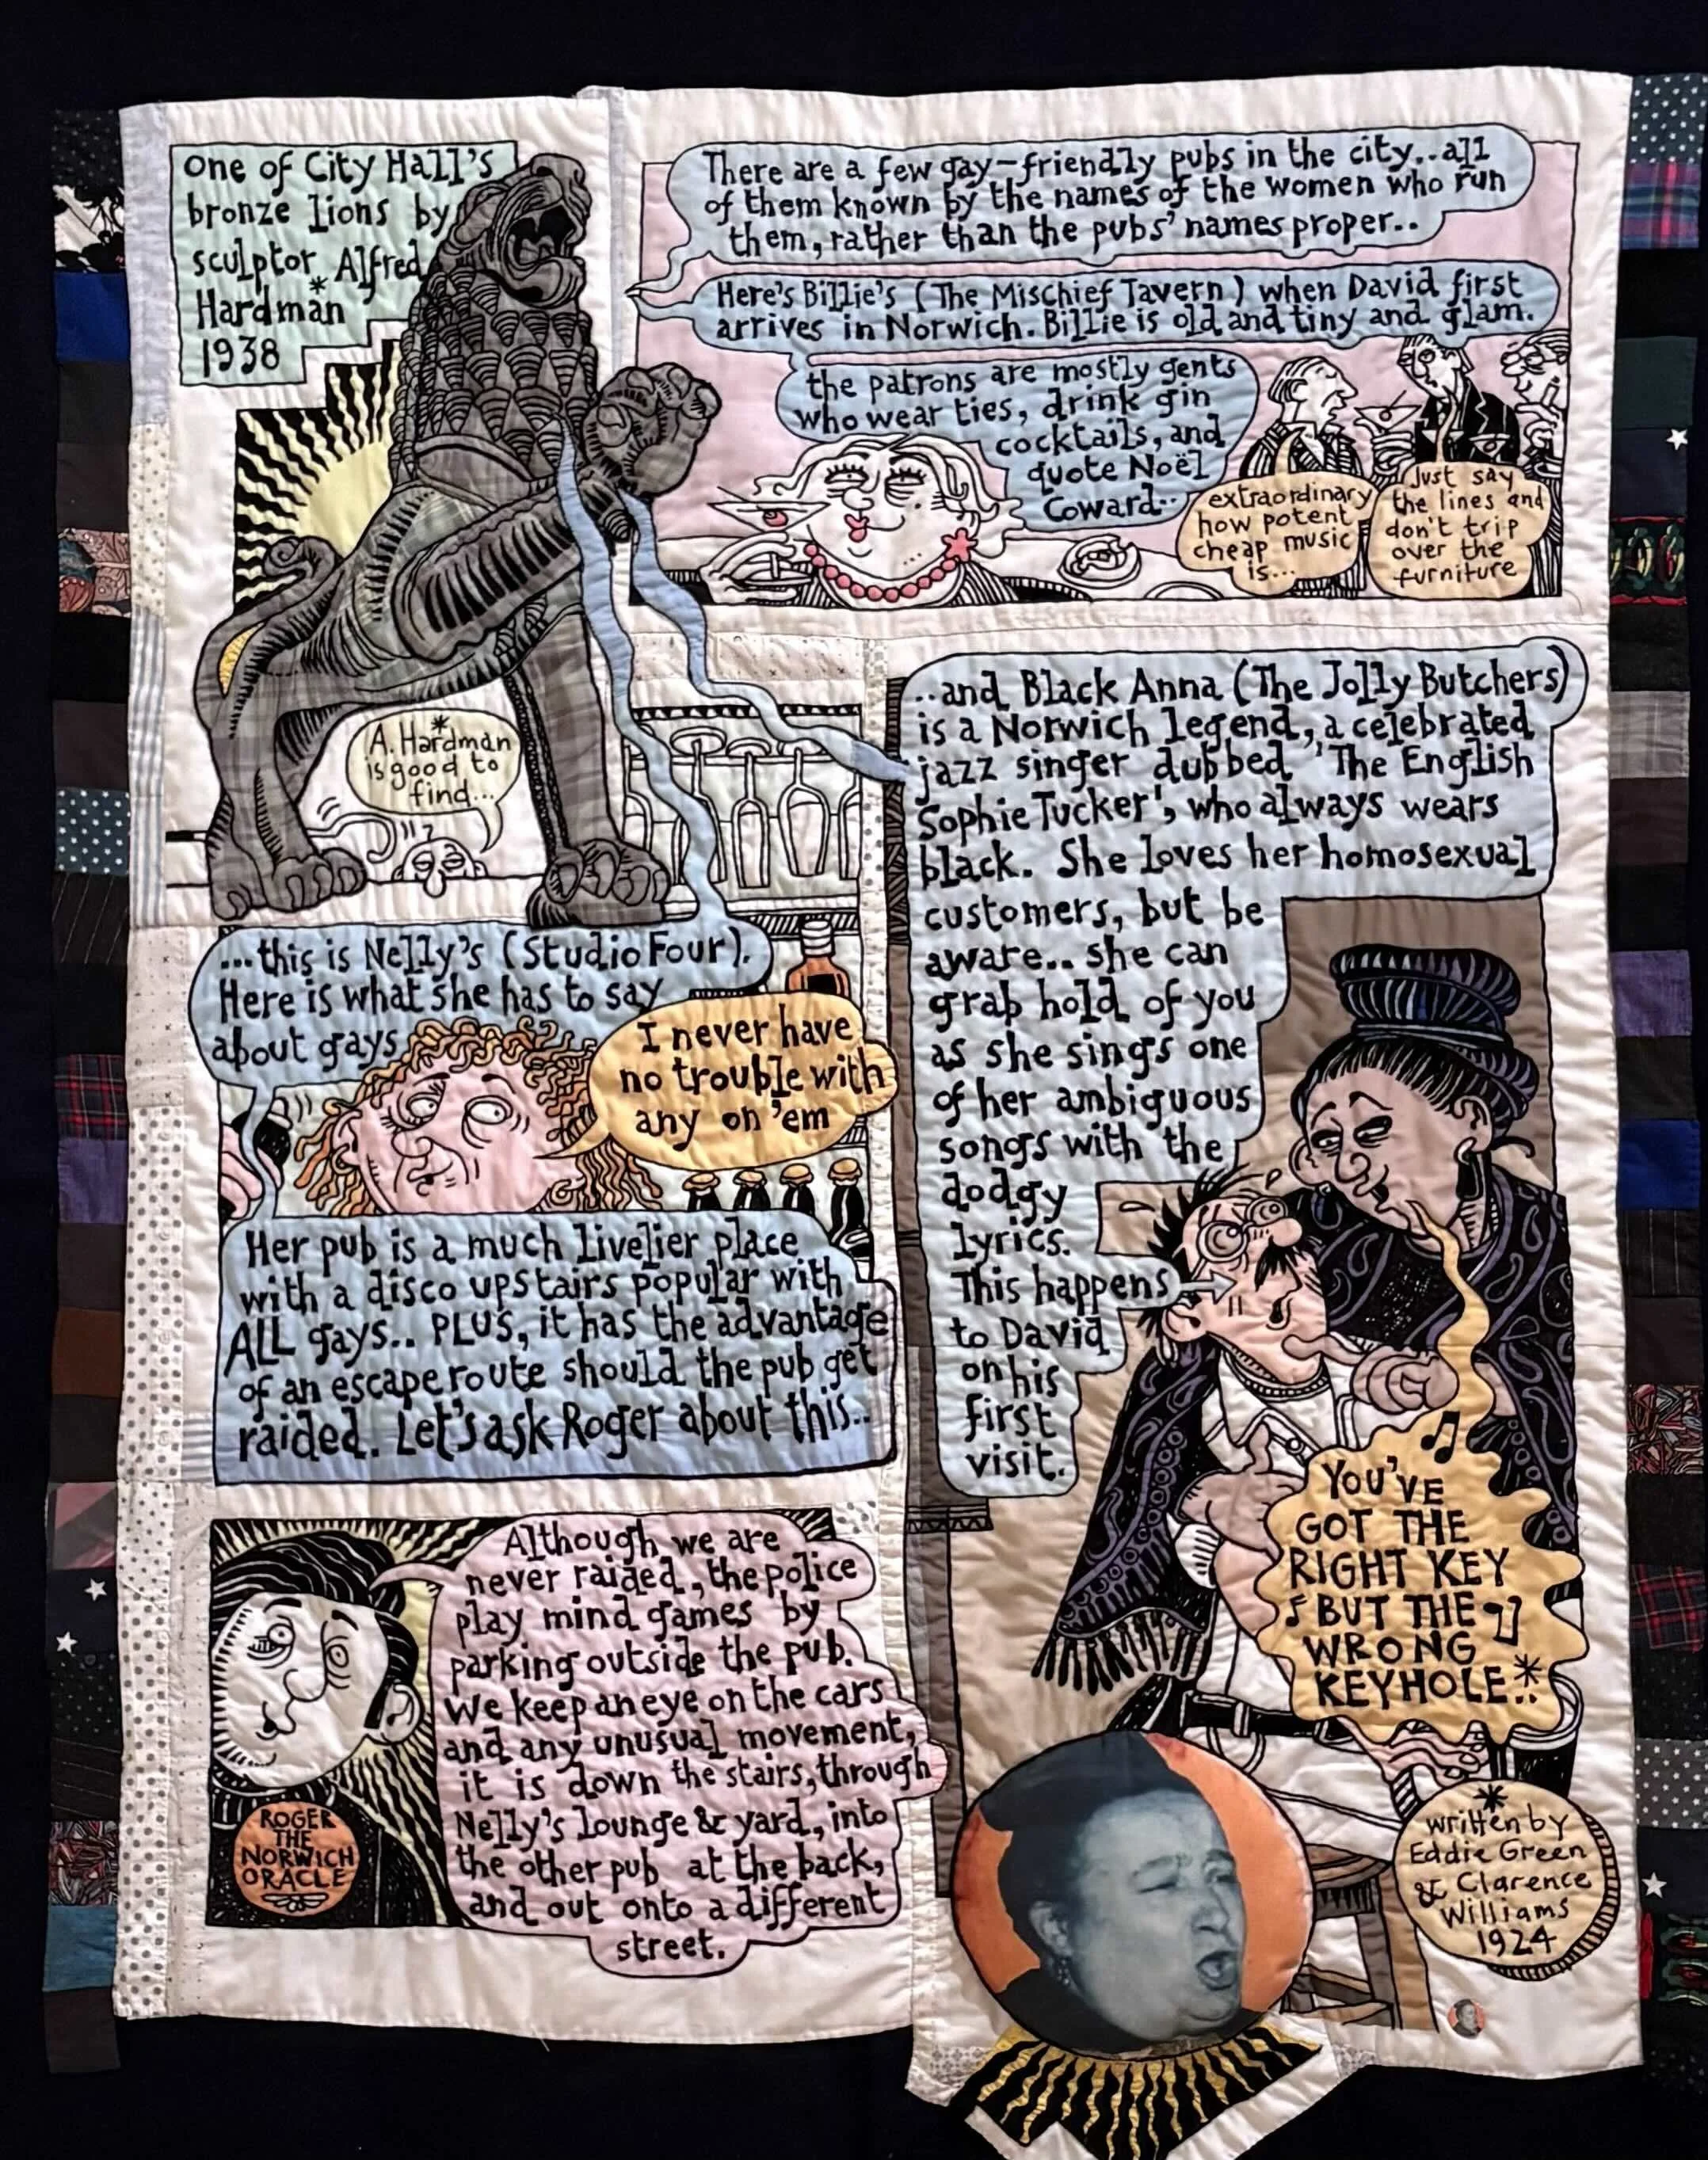 One of City Hall's
bronze lions by
sculptor Alfred
Hardman *
1938
There are a few gay-friendly pubs in the city..all
of them known by the names of the women who run
them, rather than the pubs' names proper..
Here's Billie's (The Mischief Tavern) when David first
arrives in Norwich. Billie is old and tiny and glam.
the patrons are mostly gents
who wear ties, drink gin
cocktails, and
quote Noël
Coward..
extraordinary
how potent
cheap music
is...
Just say
the lines and
don't trip
over the
furniture
*
A. Hardman
is good to
find...
...this is Nelly's (Studio Four).
Here is what she has to say
about gays
I never have
no trouble with
any on 'em
Her pub is a much livelier place
with a disco upstairs popular with
ALL gays.. PLUS, it has the advantage
of an escape route should the pub get
raided. Let's ask Roger about this..
Although we are
never raided, the police
play mind games by
parking outside the pub.
We keep an eye on the cars
and any unusual movement,
it is down the stairs, through
Nelly's lounge & yard, into
the other pub at the back,
and out onto a different
street.
ROGER
THE
NORWICH
ORACLE
..and Black Anna (The Jolly Butchers)
is a Norwich legend, a celebrated
jazz singer dubbed 'The English
Sophie Tucker', who always wears
black. She loves her homosexual
customers, but be
aware.. she can
grab hold of you
as she sings one
of her ambiguous
songs with the
dodgy
lyrics.
This happens
to David
on his
first
visit.
YOU'VE
GOT THE
RIGHT KEY
BUT THE
WRONG
KEYHOLE..*
*
written by
Eddie Green
& Clarence
Williams
1924